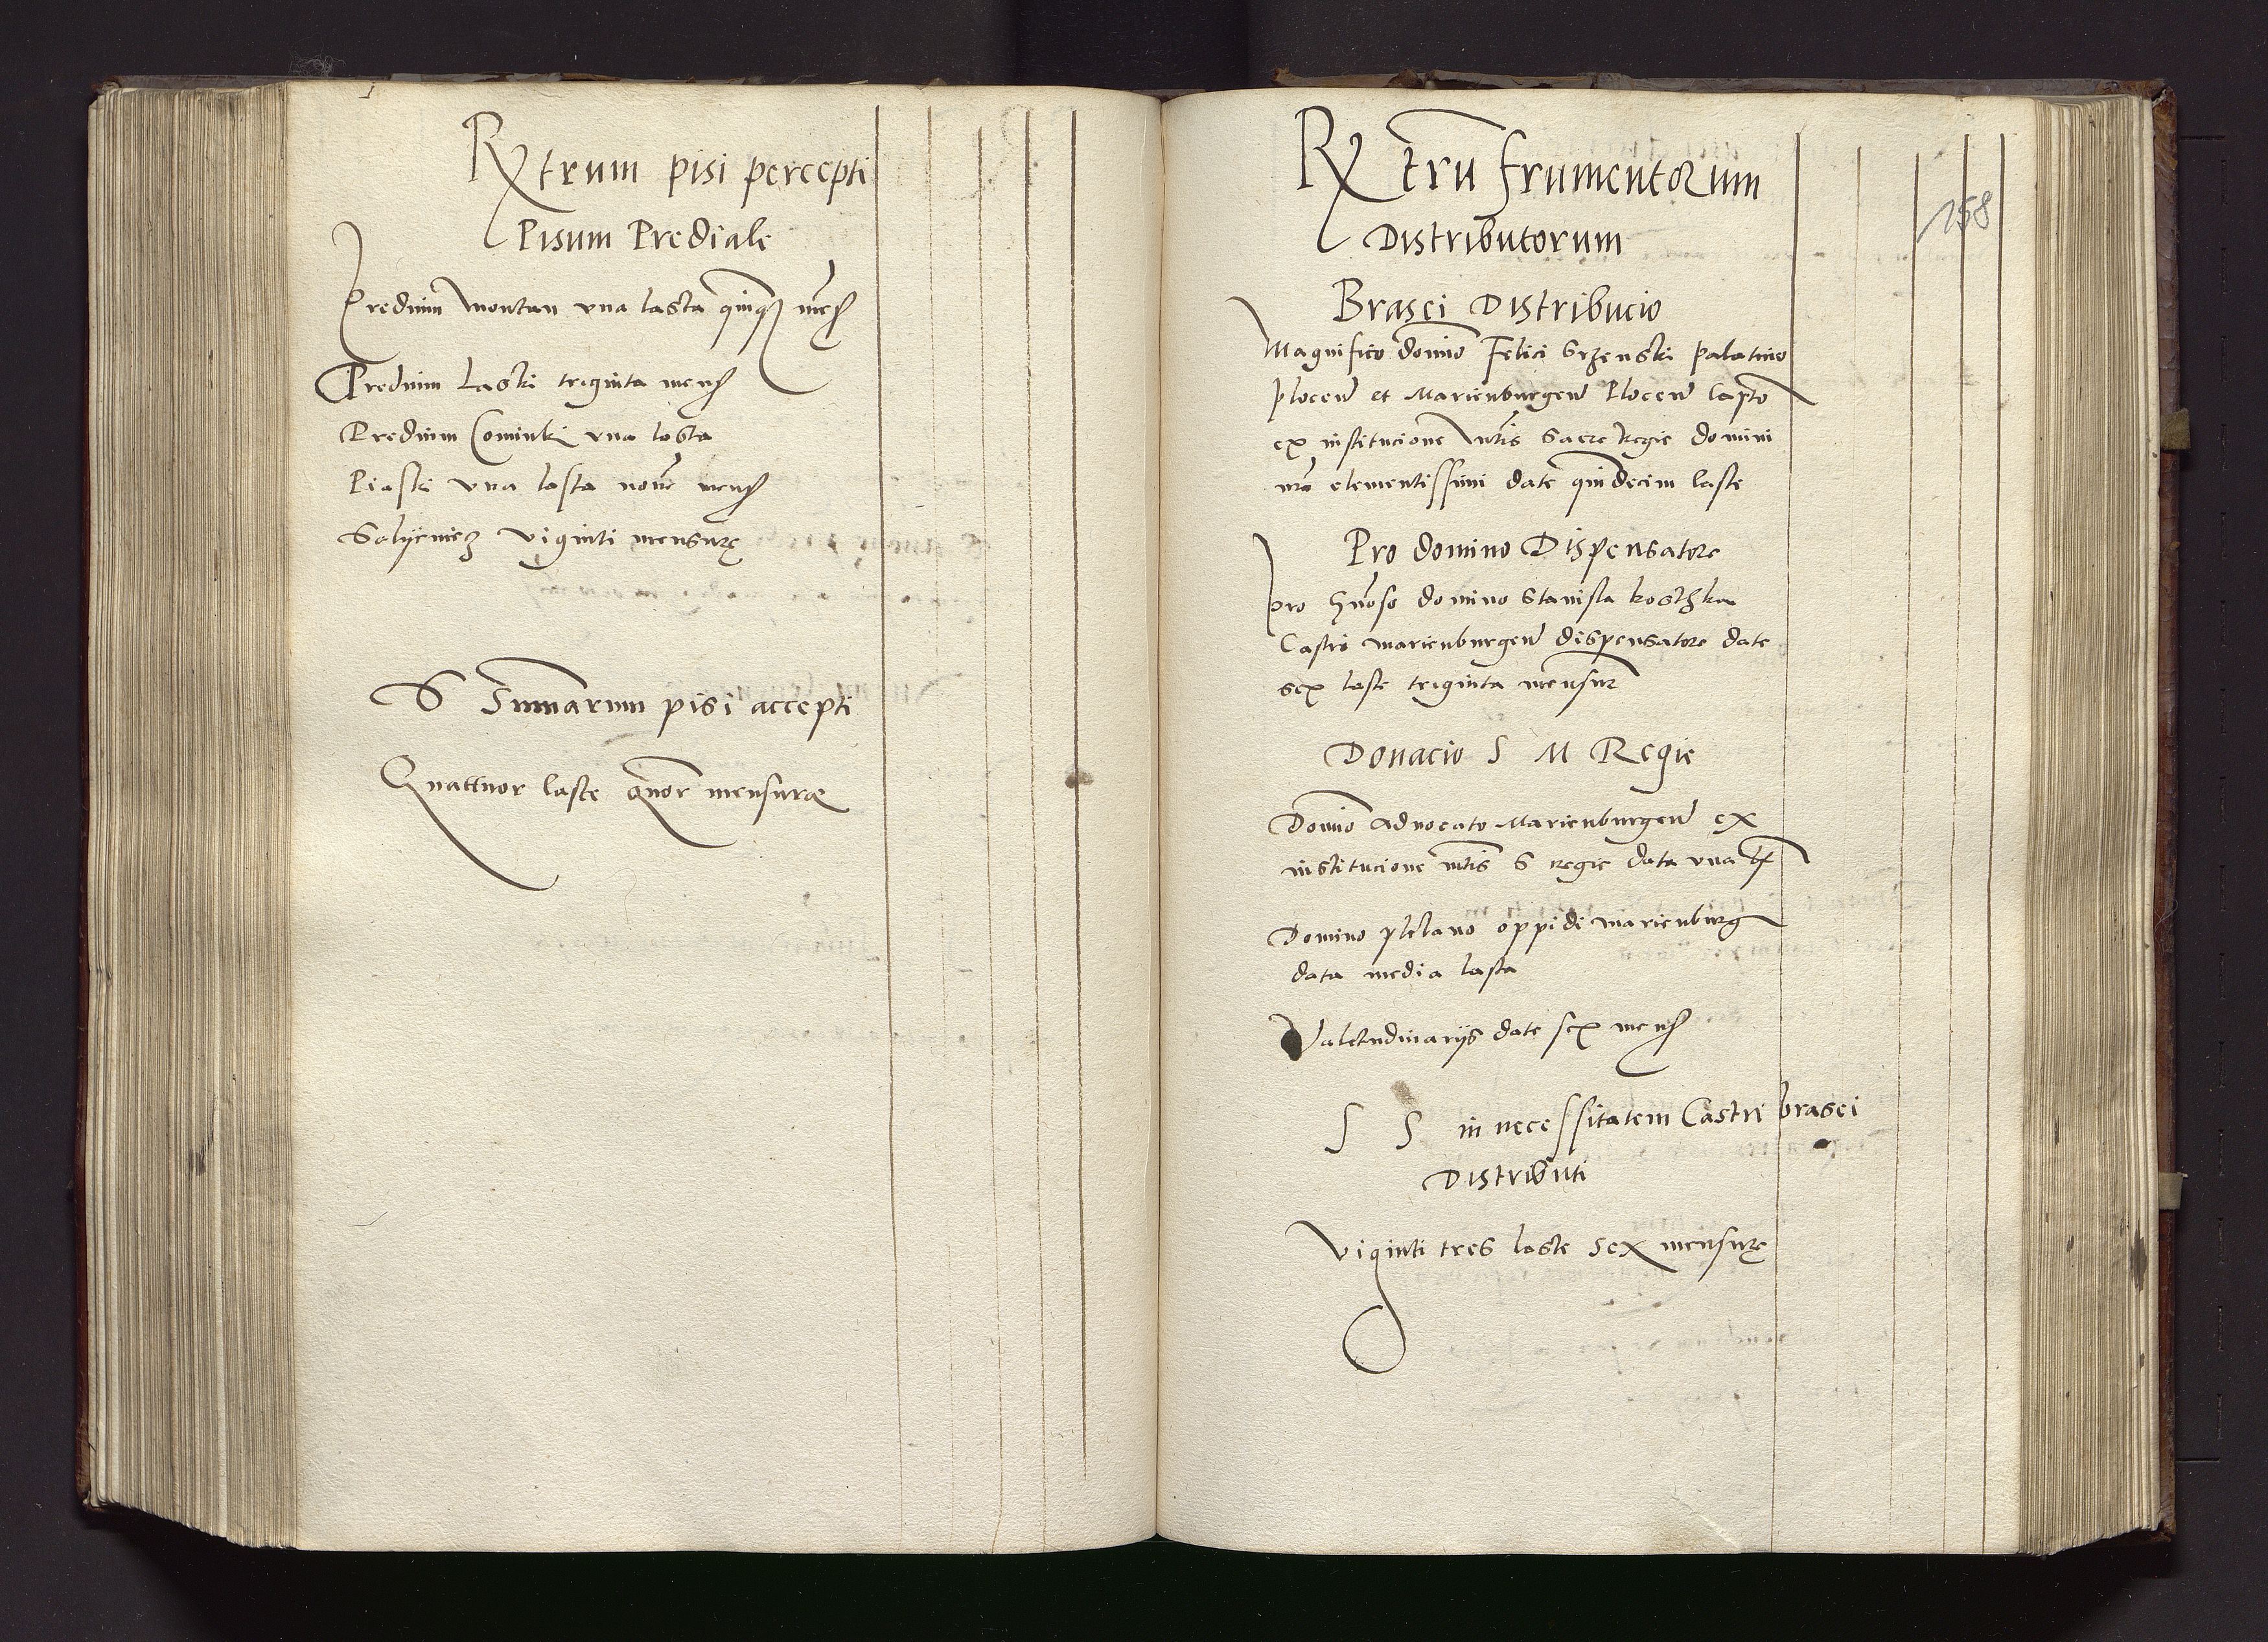 Rx trum pisi percepti
Pisum Prediale
Predium Montau una lasta quinque mens
Predium Laski triginta mens
Predium Cominki una lasta
Piaski una lasta novem mens
Solijemicz viginti mensurę
S Summarum pisi accepti
Quattuor laste quor mensuræ
158
Rx tru frumentorum
Distributorum
Brasei Distribucio
Magnifico domino Felici Srzenski palatino
plocen et Marienburgen Plocen Capto
ex institucione Mtis Sacre Regie domini
nri clementissimi date quindecim laste
Pro domino Dispensatore
Pro Gnoso domino Stanisla kosthka
Castri marienburgen dispensatore date
sex laste triginta mensur
Donacio S M Regie
Domino advocato Marienburgen ex
institucione mtis S regie data una lt
Domino plebano oppidi marienburg
data media lasta
Valetudinarijs date sex mens
S S in necessitatem Castri brasei
Distributi
Viginti tres laste sex mensurę